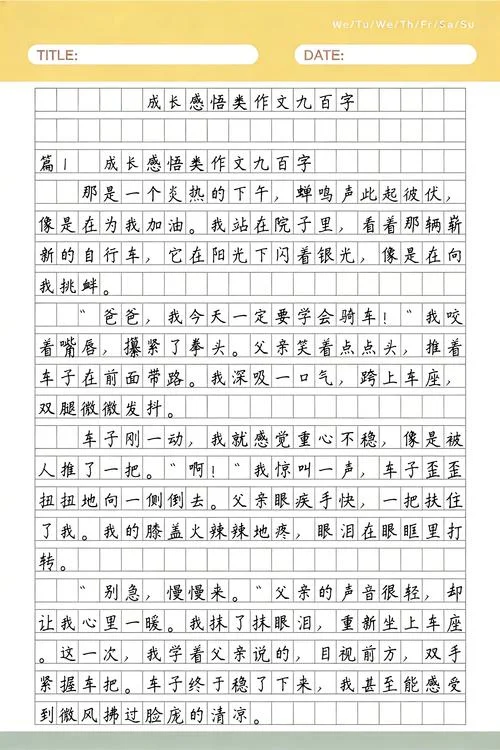 We/Tu/We/Th/Fr/Sa/Su
TITLE: DATE:
成长感悟类作文九百字
篇1 成长感悟类作文九百字
那是一个炎热的下午，蝉鸣声此起彼伏，
像是在为我加油。我站在院子里，看着那辆崭
新的自行车，它在阳光下闪着银光，像是在向
我挑衅。
“爸爸，我今天一定要学会骑车！”我咬
着嘴唇，攥紧了拳头。父亲笑着点点头，推着
车子在前面带路。我深吸一口气，跨上车座，
双腿微微发抖。
车子刚一动，我就感觉重心不稳，像是被
人推了一把。“啊！”我惊叫一声，车子歪歪
扭扭地向一侧倒去。父亲眼疾手快，一把扶住
了我。我的膝盖火辣辣地疼，眼泪在眼眶里打
转。
“别急，慢慢来。”父亲的声音很轻，却
让我心里一暖。我抹了抹眼泪，重新坐上车座
。这一次，我学着父亲说的，目视前方，双手
紧握车把。车子终于稳了下来，我甚至能感受
到微风拂过脸庞的清凉。